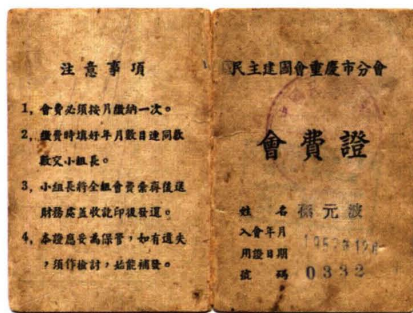 注意事項
1, 會費必須按月繳納一次。
2, 繳費時填好年月數目連同款
數交小組長。
3, 小組長將全組會費彙齊後送
財務處蓋收訖印後發還。
4, 本證應妥為保管，如有遺失
，須作檢討，始能補發。
民主建國會重慶市分會
會費證
姓 名 元波
入會年月
用證日期
號 碼 0332